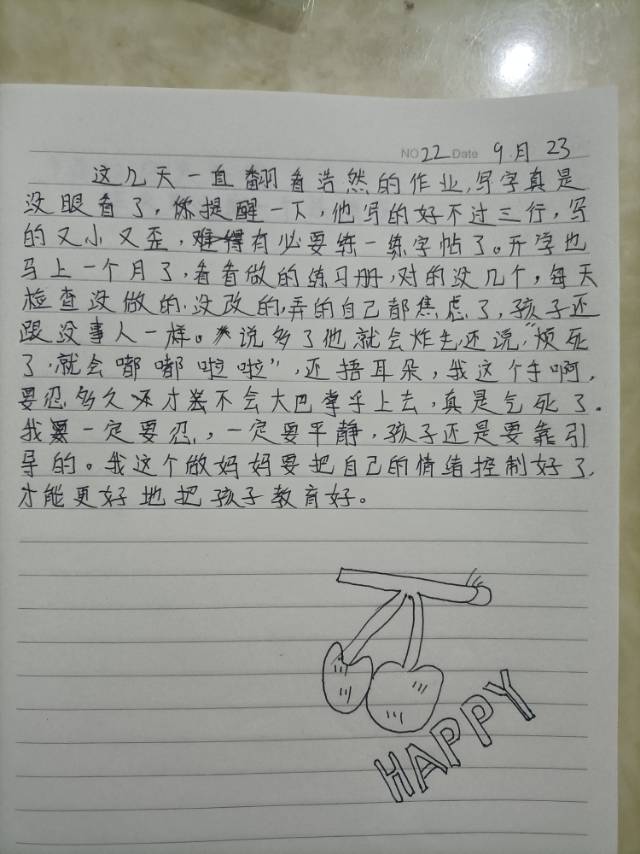 NO 22 Date 9.月 23
这几天一直翻看浩然的作业,写字真是
没眼看了,你提醒一下,他写的好不过三行,写
的又小又歪,有必要练一练字帖了。开学也
马上一个月了,看看做的练习册,对的没几个,每天
检查没做的.没改的,弄的自己都焦虑了,孩子还
跟没事人一样。说多了他就会炸毛,还说,"烦死
了,就会嘟嘟啦啦",还捂耳朵,我这个手啊,
要忍多久才不会大巴掌乎上去,真是气死了。
我一定要忍,一定要平静,孩子还是要靠引
导的。我这个做妈妈要把自己的情绪控制好了,
才能更好地把孩子教育好。
HAPPY